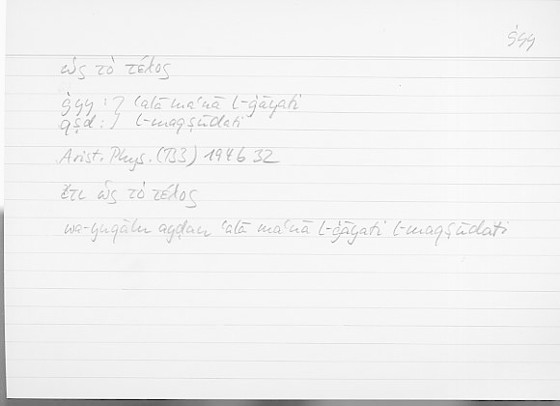 ġyy
ὡς τὸ τέλος
ġyy : } ʿalā maʿnā l-ġāyati
qṣd : } l-maqṣūdati
Arist. Phys. (B3) 194b 32
ἔτι ὡς τὸ τέλος
wa-yuqālu ayḍan ʿalā maʿnā l-ġāyati l-maqṣūdati